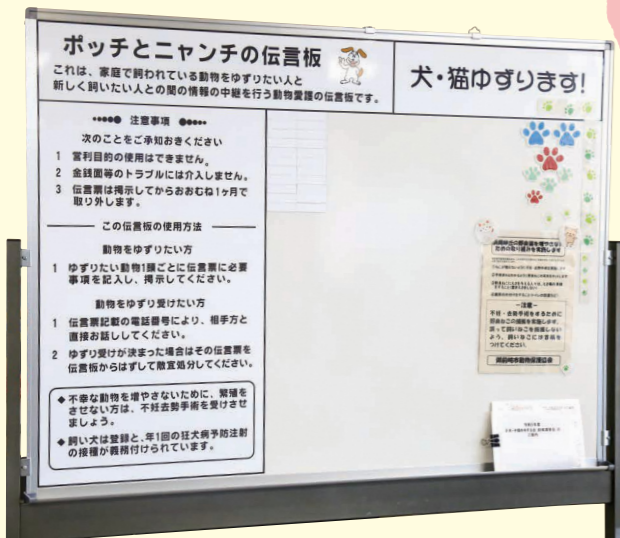 ポッチとニャンチの伝言板
これは、家庭で飼われている動物をゆずりたい人と
新しく飼いたい人との間の情報の中継を行う動物愛護の伝言板です。
犬・猫ゆずります!
注意事項
次のことをご承知おきください
1 営利目的の使用はできません。
2 金銭面等のトラブルには介入しません。
3 伝言票は掲示してからおおむね1ヶ月で
取り外します。
この伝言板の使用方法
動物をゆずりたい方
1 ゆずりたい動物1頭ごとに伝言票に必要
事項を記入し、掲示してください。
動物をゆずり受けたい方
1 伝言票記載の電話番号により、相手方と
直接お話ししてください。
2 ゆずり受けが決まった場合はその伝言票を
伝言板からはずして敵宜処分してください。
◆ 不幸な動物を増やさないために、繁殖を
させない方は、不妊去勢手術を受けさせ
ましょう。
◆ 飼い犬は登録と、年1回の狂犬病予防注射
の接種が義務付けられています。
ための取り組みを実施します
－注意－
不妊・去勢手術をするために
うに、飼いねこには首輪を
つけてください。